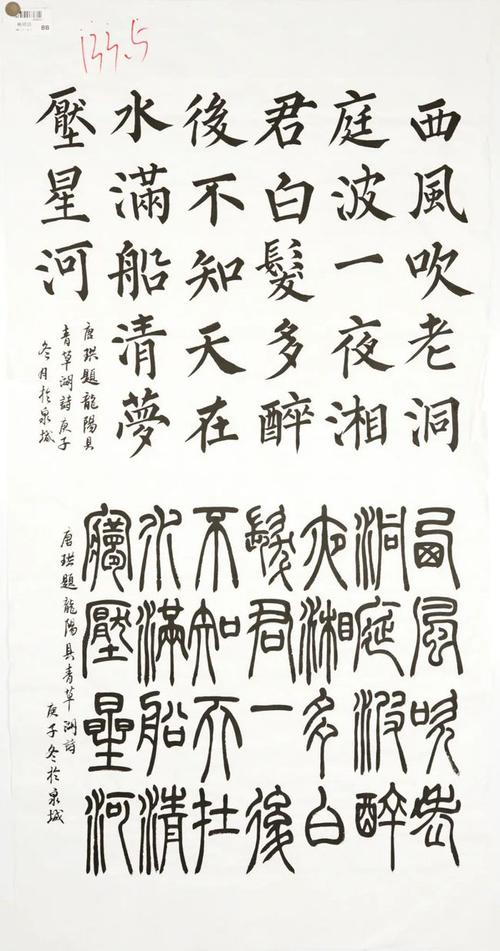 88
133.5
西風吹老洞
庭波一夜湘
君白髮多醉
後不知天在
水滿船清夢
壓星河
唐珙題龍陽具
青草湖詩庚子
冬月於泉城
西風吹老
洞庭波醉
夜湘多白
髮君一後
不知天在
水滿船清
夢壓星河
唐珙題龍陽具青草湖詩
庚子冬於泉城